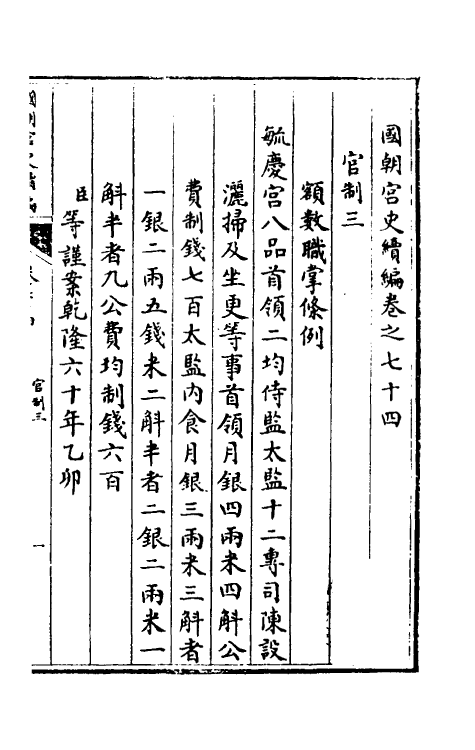 國朝宮史續編卷之七十四
官制三
額數職掌條例
毓慶宮八品首領二均侍監太監十二專司陳設
灑掃及坐更等事首領月銀四兩米四斛公
費制錢七百太監內食月銀三兩米三斛者
一銀二兩五錢米二斛半者二銀二兩米一
斛半者九公費均制錢六百
臣等謹案乾隆六十年乙卯
國朝宮史續編
官制三
一